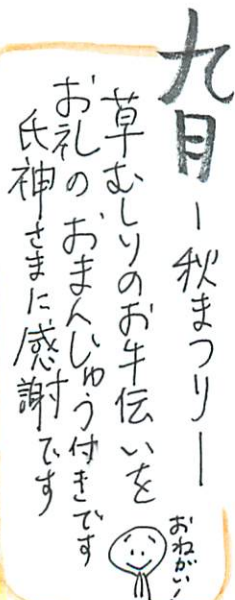 九月 ー秋まつりー
草むしりのお手伝いを
おねがい!
お礼のおまんじゅう付きです
氏神さまに感謝です